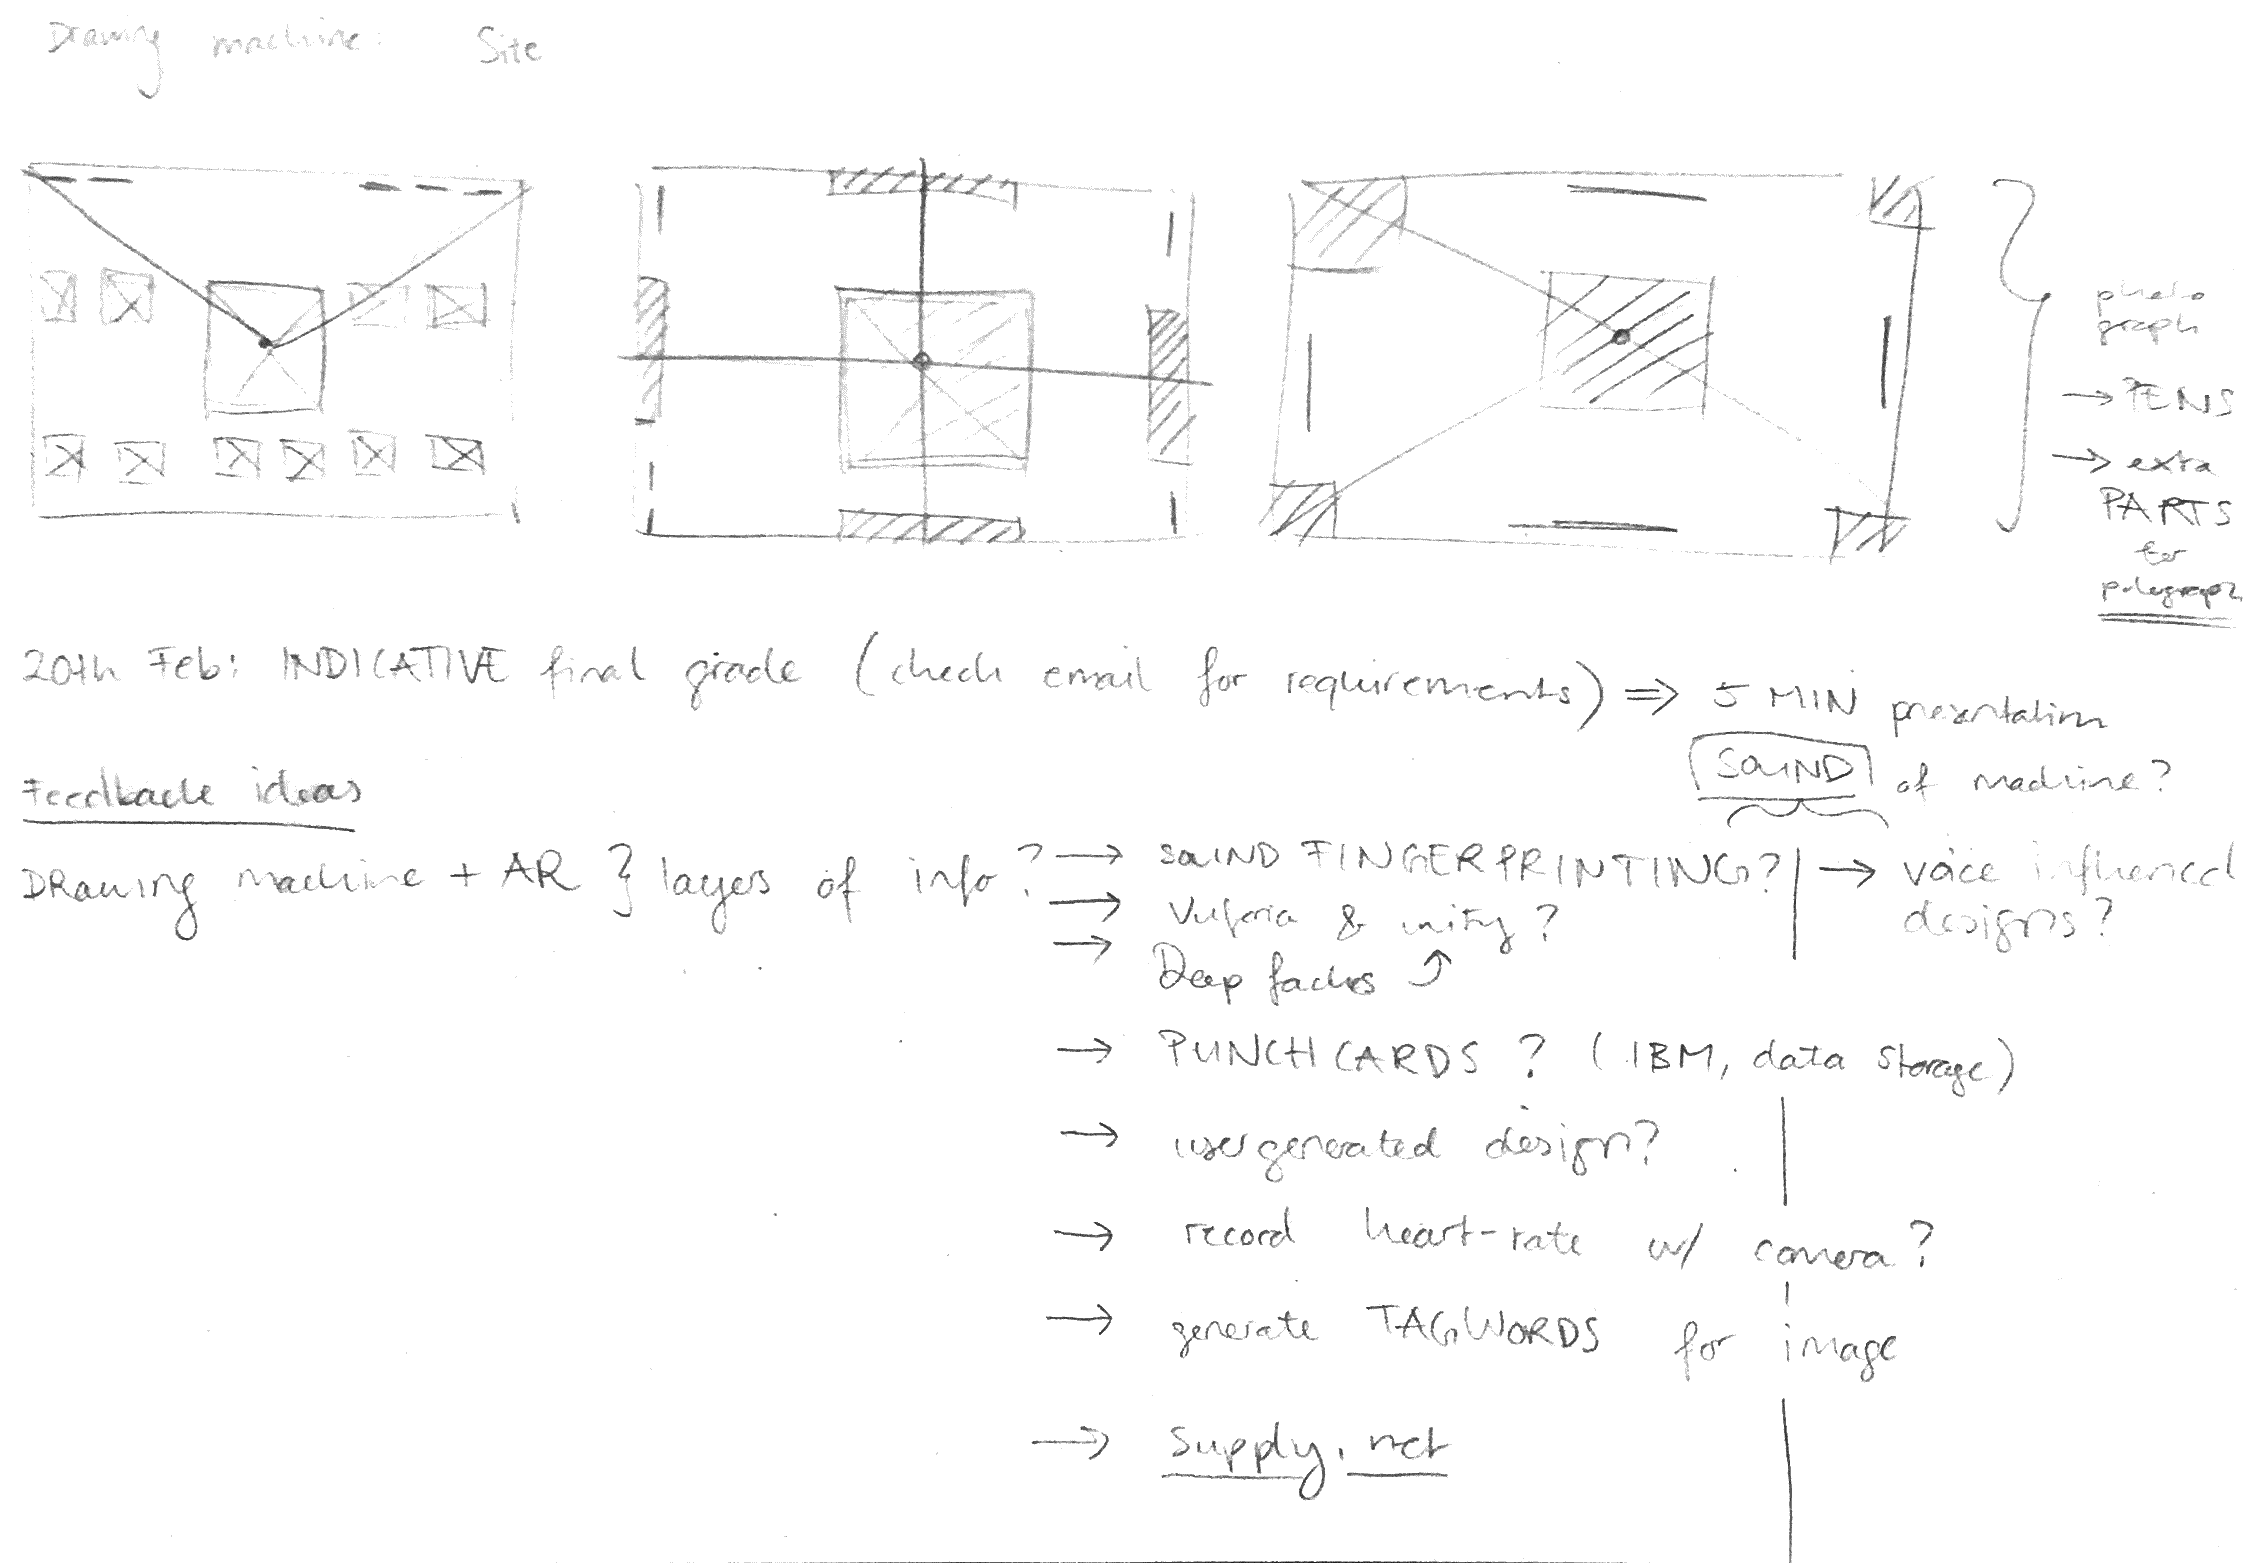 Drawing machine: Site
photo
graph
→ PENS
→ extra
PARTS
for
polargraph
20th Feb: INDICATIVE final grade (check email for requirements) ⇒ 5 MIN presentation
SOUND of machine?
Feedback ideas
DRawing machine + AR } layers of info?
→ SOUND FINGERPRINTING? → voice influenced
designs?
→ Vuforia & unity?
→ Deep fackes
→ PUNCHCARDS? (IBM, data storage)
→ user generated design?
→ record heart-rate w/ camera?
→ generate TAGWORDS for image
→ supply.net